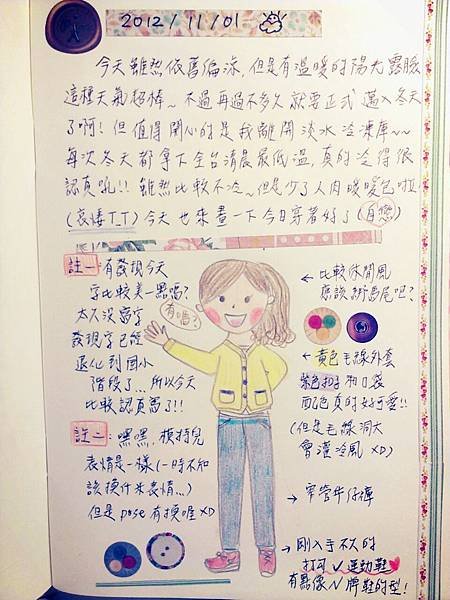 2012/11/01
今天雖然依舊偏涼,但是有溫暖的陽光露臉
這種天氣超棒~ 不過再過不多久就要正式邁入冬天
了啊! 但值得開心的是我離開淡水冷凍庫~~
每次冬天都拿下全台清晨最低溫,真的冷得很
認真吼!! 雖然比較不冷~但是少了人肉暖暖包啦!
(哀悽T_T) 今天也來畫一下今日穿著好了(自戀)
註一:有發現今天
字比較美一點嗎?
太久沒寫字
發現字已經
退化到國小
階段了...所以今天
比較認真寫了!!
註二:嘿嘿,模特兒
表情是一樣(一時不知
該換什麼表情...)
但是pose有換喔XD
有嗎?
←比較休閒風
應該綁馬尾吧?
←黃色毛線外套
紫色扣子和口袋
配色真的好可愛!!
(但是毛線洞大
會灌冷風 XD)
→窄管牛仔褲
→剛入手不久的
打勾✓運動鞋
有點像N牌鞋的型!